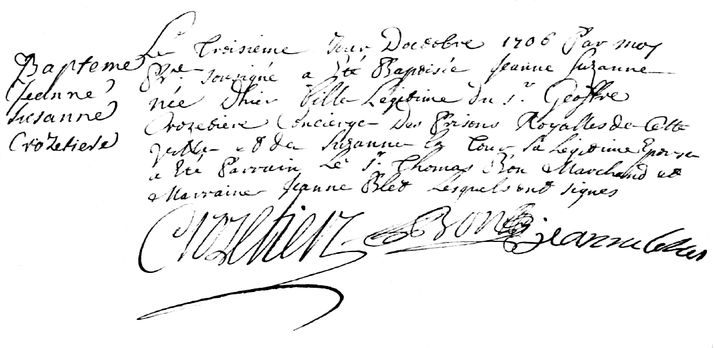 Bapteme
Jeanne
Susanne
Crozetiere
Le Troisieme Jour Doctobre 1706 Par moy
Ptre sousigné a êté Baptisée Jeanne Suzanne
née Dhier fille Legitime du Sr. Geoffre
Crozetiere Concierge Des Prisons Royalles de Cette
ville et de Suzanne La Tour Sa Legitime Epouse
a Eté Parrain Le Sr. Thomas Bon Marchand et
Marraine Jeanne Blet Lesquels ont signés
Crozetiere Bon jeanne blet